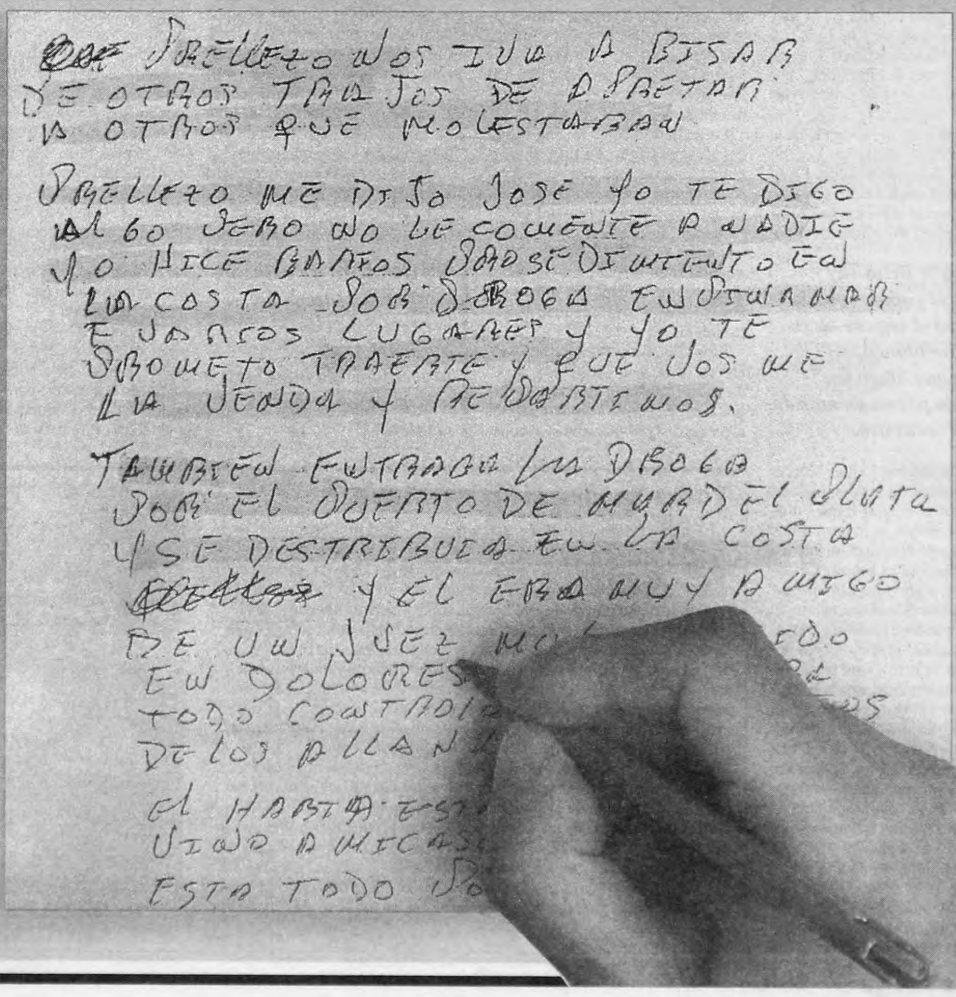 PRELLEZO NOS IVA A BISAR
DE OTROS TRAJOS DE APRETAR
A OTROS QUE MOLESTABAN
PRELLEZO ME DIJO JOSE YO TE DIGO
ALGO PERO NO LE COMENTE A NADIE
YO HICE BARIOS PROSEDIMIENTO EN
LA COSTA POR DROGA EN PINAMAR
E VARIOS LUGARES Y YO TE
PROMETO TRAERTE Y QUE VOS ME
LA VENDA Y REPARTIMOS.
TAMBIEN ENTRABA LA DROGA
POR EL PUERTO DE MAR DEL PLATA
Y SE DESTRIBUIA EN LA COSTA
Y EL ERA MUY AMIGO
DE UN JUEZ
EN DOLORES
TODO
DE LOS
EL HABIA
VINO A MI
ESTA TODO